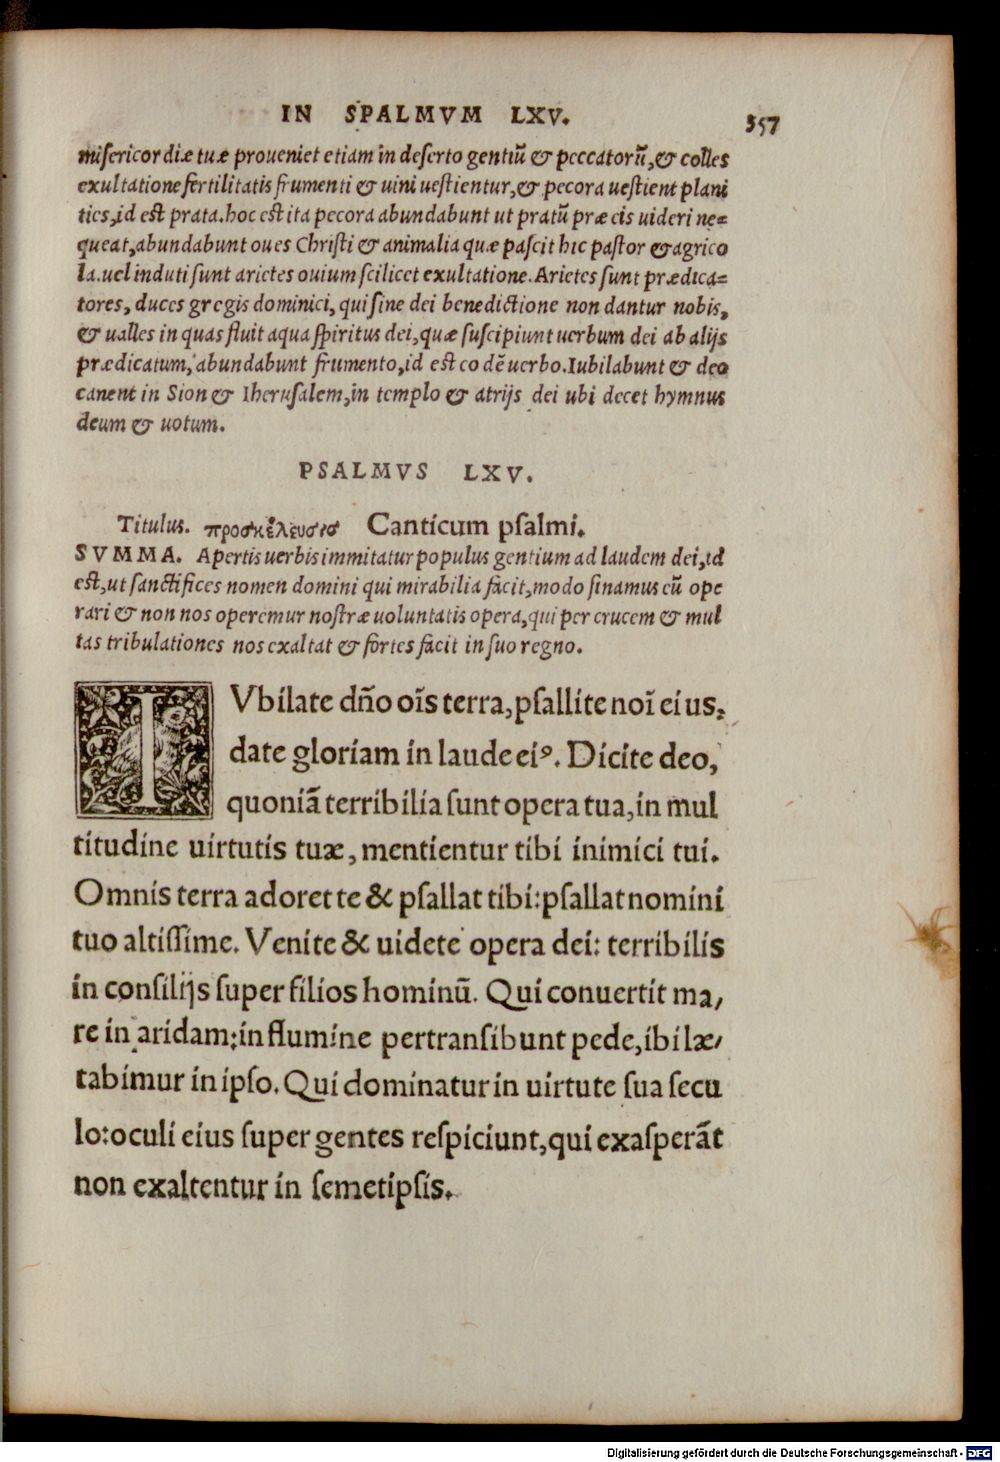 IN SPALMVM LXV. 357
misericordiæ tuæ proueniet etiam in deserto gentiū & peccatorū, & colles
exultatione fertilitatis frumenti & uini uestientur, & pecora uestient plani
ties, id est prata. hoc est ita pecora abundabunt ut pratū præ eis uideri ne=
queat, abundabunt oues Christi & animalia quæ pascit hic pastor & agrico
la. uel induti sunt arietes ouium scilicet exultatione. Arietes sunt prædica=
tores, duces gregis dominici, qui sine dei benedictione non dantur nobis,
& ualles in quas fluit aqua spiritus dei, quæ suscipiunt uerbum dei ab alijs
prædicatum, abundabunt frumento, id est eo dē uerbo. Iubilabunt & deo
canent in Sion & Iherusalem, in templo & atrijs dei ubi decet hymnus
deum & uotum.
PSALMVS LXV.
Titulus. προσκέλευσις Canticum psalmi.
SVMMA. Apertis uerbis immitatur populus gentium ad laudem dei, id
est, ut sanctifices nomen domini qui mirabilia facit, modo sinamus eū ope
rari & non nos operemur nostræ uoluntatis opera, qui per crucem & mul
tas tribulationes nos exaltat & fortes facit in suo regno.
IVbilate dño oīs terra, psallite noī eius,
date gloriam in laude eiꝰ. Dicite deo,
quoniā terribilia sunt opera tua, in mul
titudine uirtutis tuæ, mentientur tibi inimici tui.
Omnis terra adoret te & psallat tibi: psallat nomini
tuo altissime. Venite & uidete opera dei: terribilis
in consilijs super filios hominū. Qui conuertit ma/
re in aridam: in flumine pertransibunt pede, ibi læ/
tabimur in ipso. Qui dominatur in uirtute sua secu
lo: oculi eius super gentes respiciunt, qui exasperāt
non exaltentur in semetipsis.
Digitalisierung gefördert durch die Deutsche Forschungsgemeinschaft - DFG